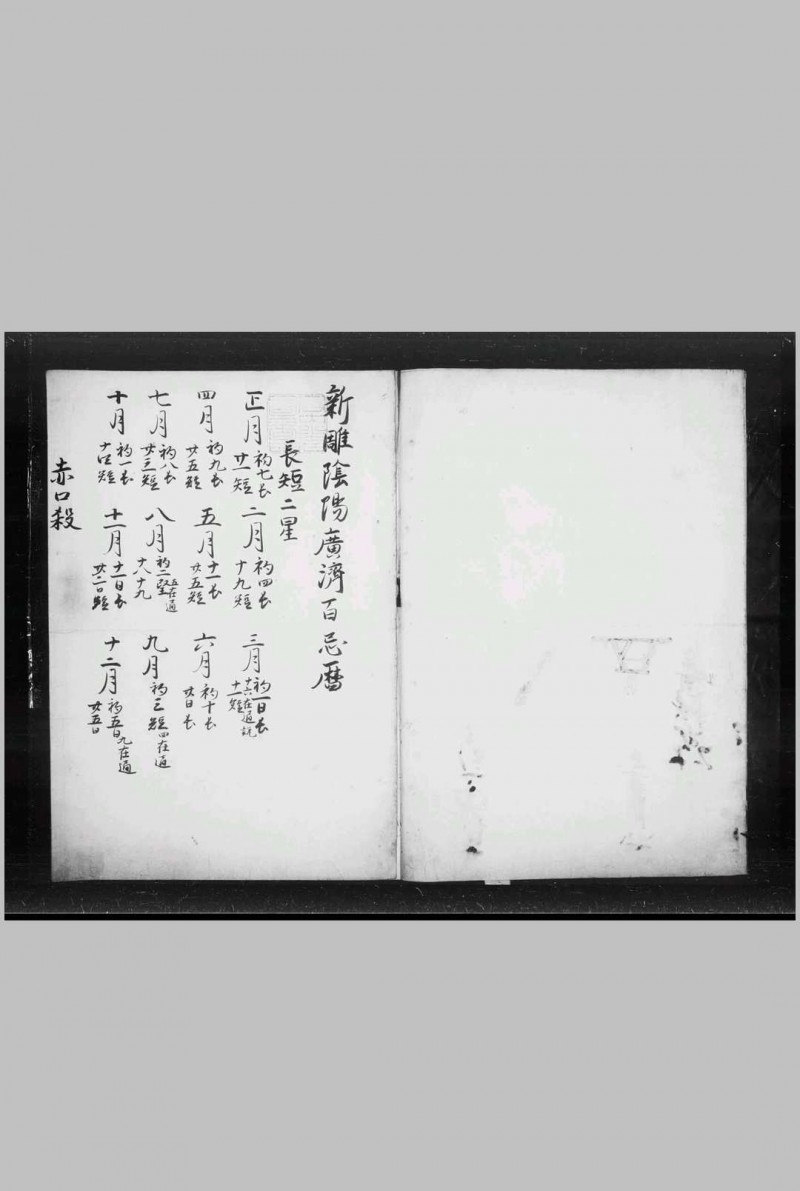 新雕陰陽廣濟百忌暦
長短二星
正月 初七长 廿一短 二月 初四长 十九短 三月 初一日长 十六在通 十一短
四月 初九长 廿五短 五月 十一长 廿五短 六月 初十长 廿日长
七月 初八长 廿三短 八月 初二 五在通 十八十九 九月 初三短 四在通
十月 初一长 短 十一月 十一日长 廿二日短 十二月 初五日 九在通 廿五日
赤口殺